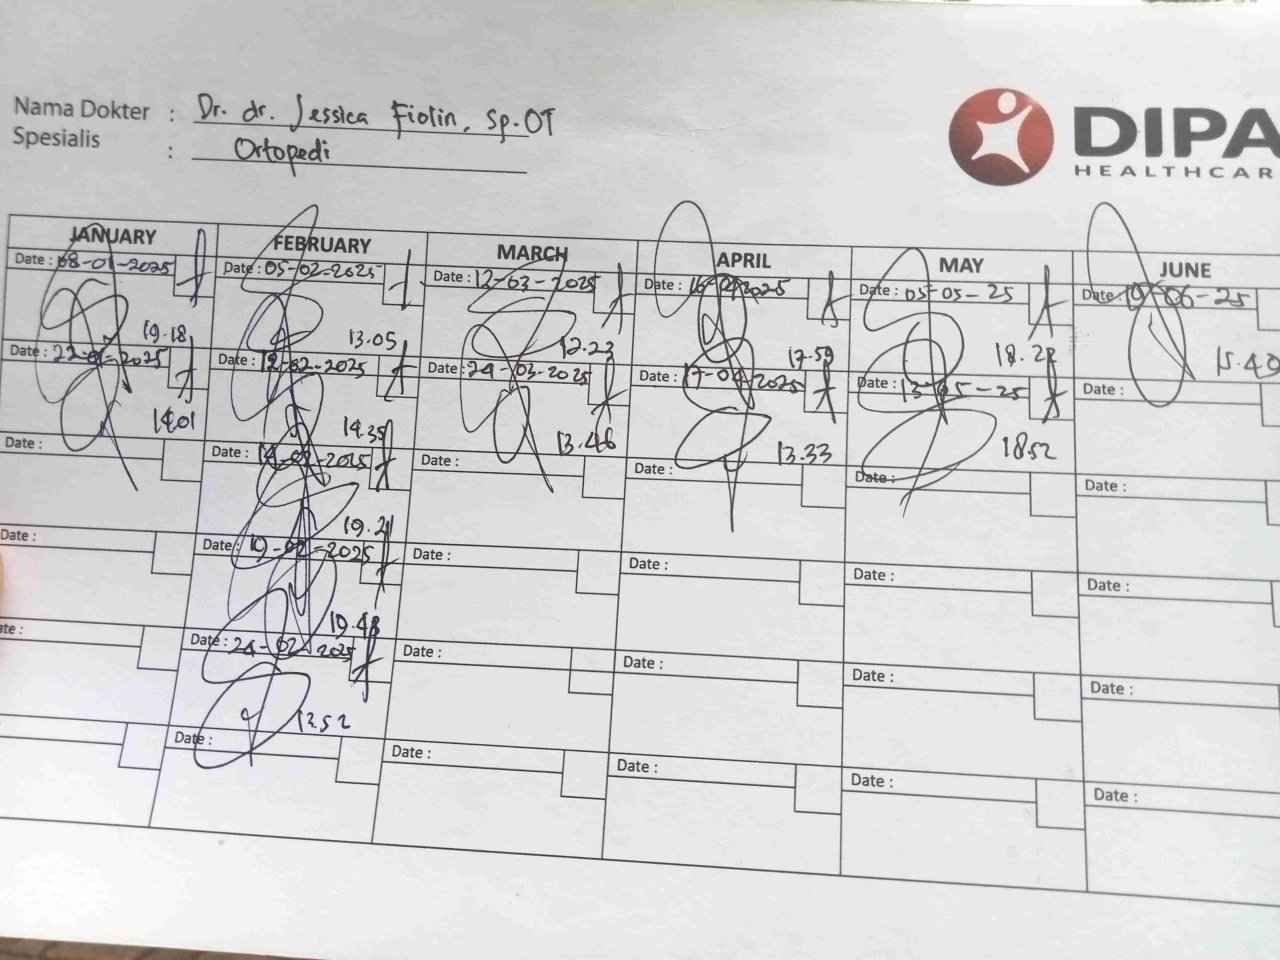 Nama Dokter : Dr. dr. Jessica Fiolin, Sp.OT
Spesialis : Ortopedi
DIPA
HEALTHCAR
JANUARY FEBRUARY MARCH APRIL MAY JUNE
Date : 08-01-2025 Date : 05-02-2025 Date : 12-03-2025 Date : 16-04-2025 Date : 05-05-25 Date : 19-06-25
19.18 13.05 12.23 17.59 18.22 15.40
Date : 22-01-2025 Date : 12-02-2025 Date : 24-03-2025 Date : 17-04-2025 Date : 13-05-25 Date :
14.01 14.35 13.46 13.33 18.52
Date : Date : 14-02-2025 Date : Date : Date : Date :
19.21
Date : Date : 19-02-2025 Date : Date : Date : Date :
19.48
ate : Date : 24-02-2025 Date : Date : Date : Date :
13.52
Date : Date : Date : Date : Date :